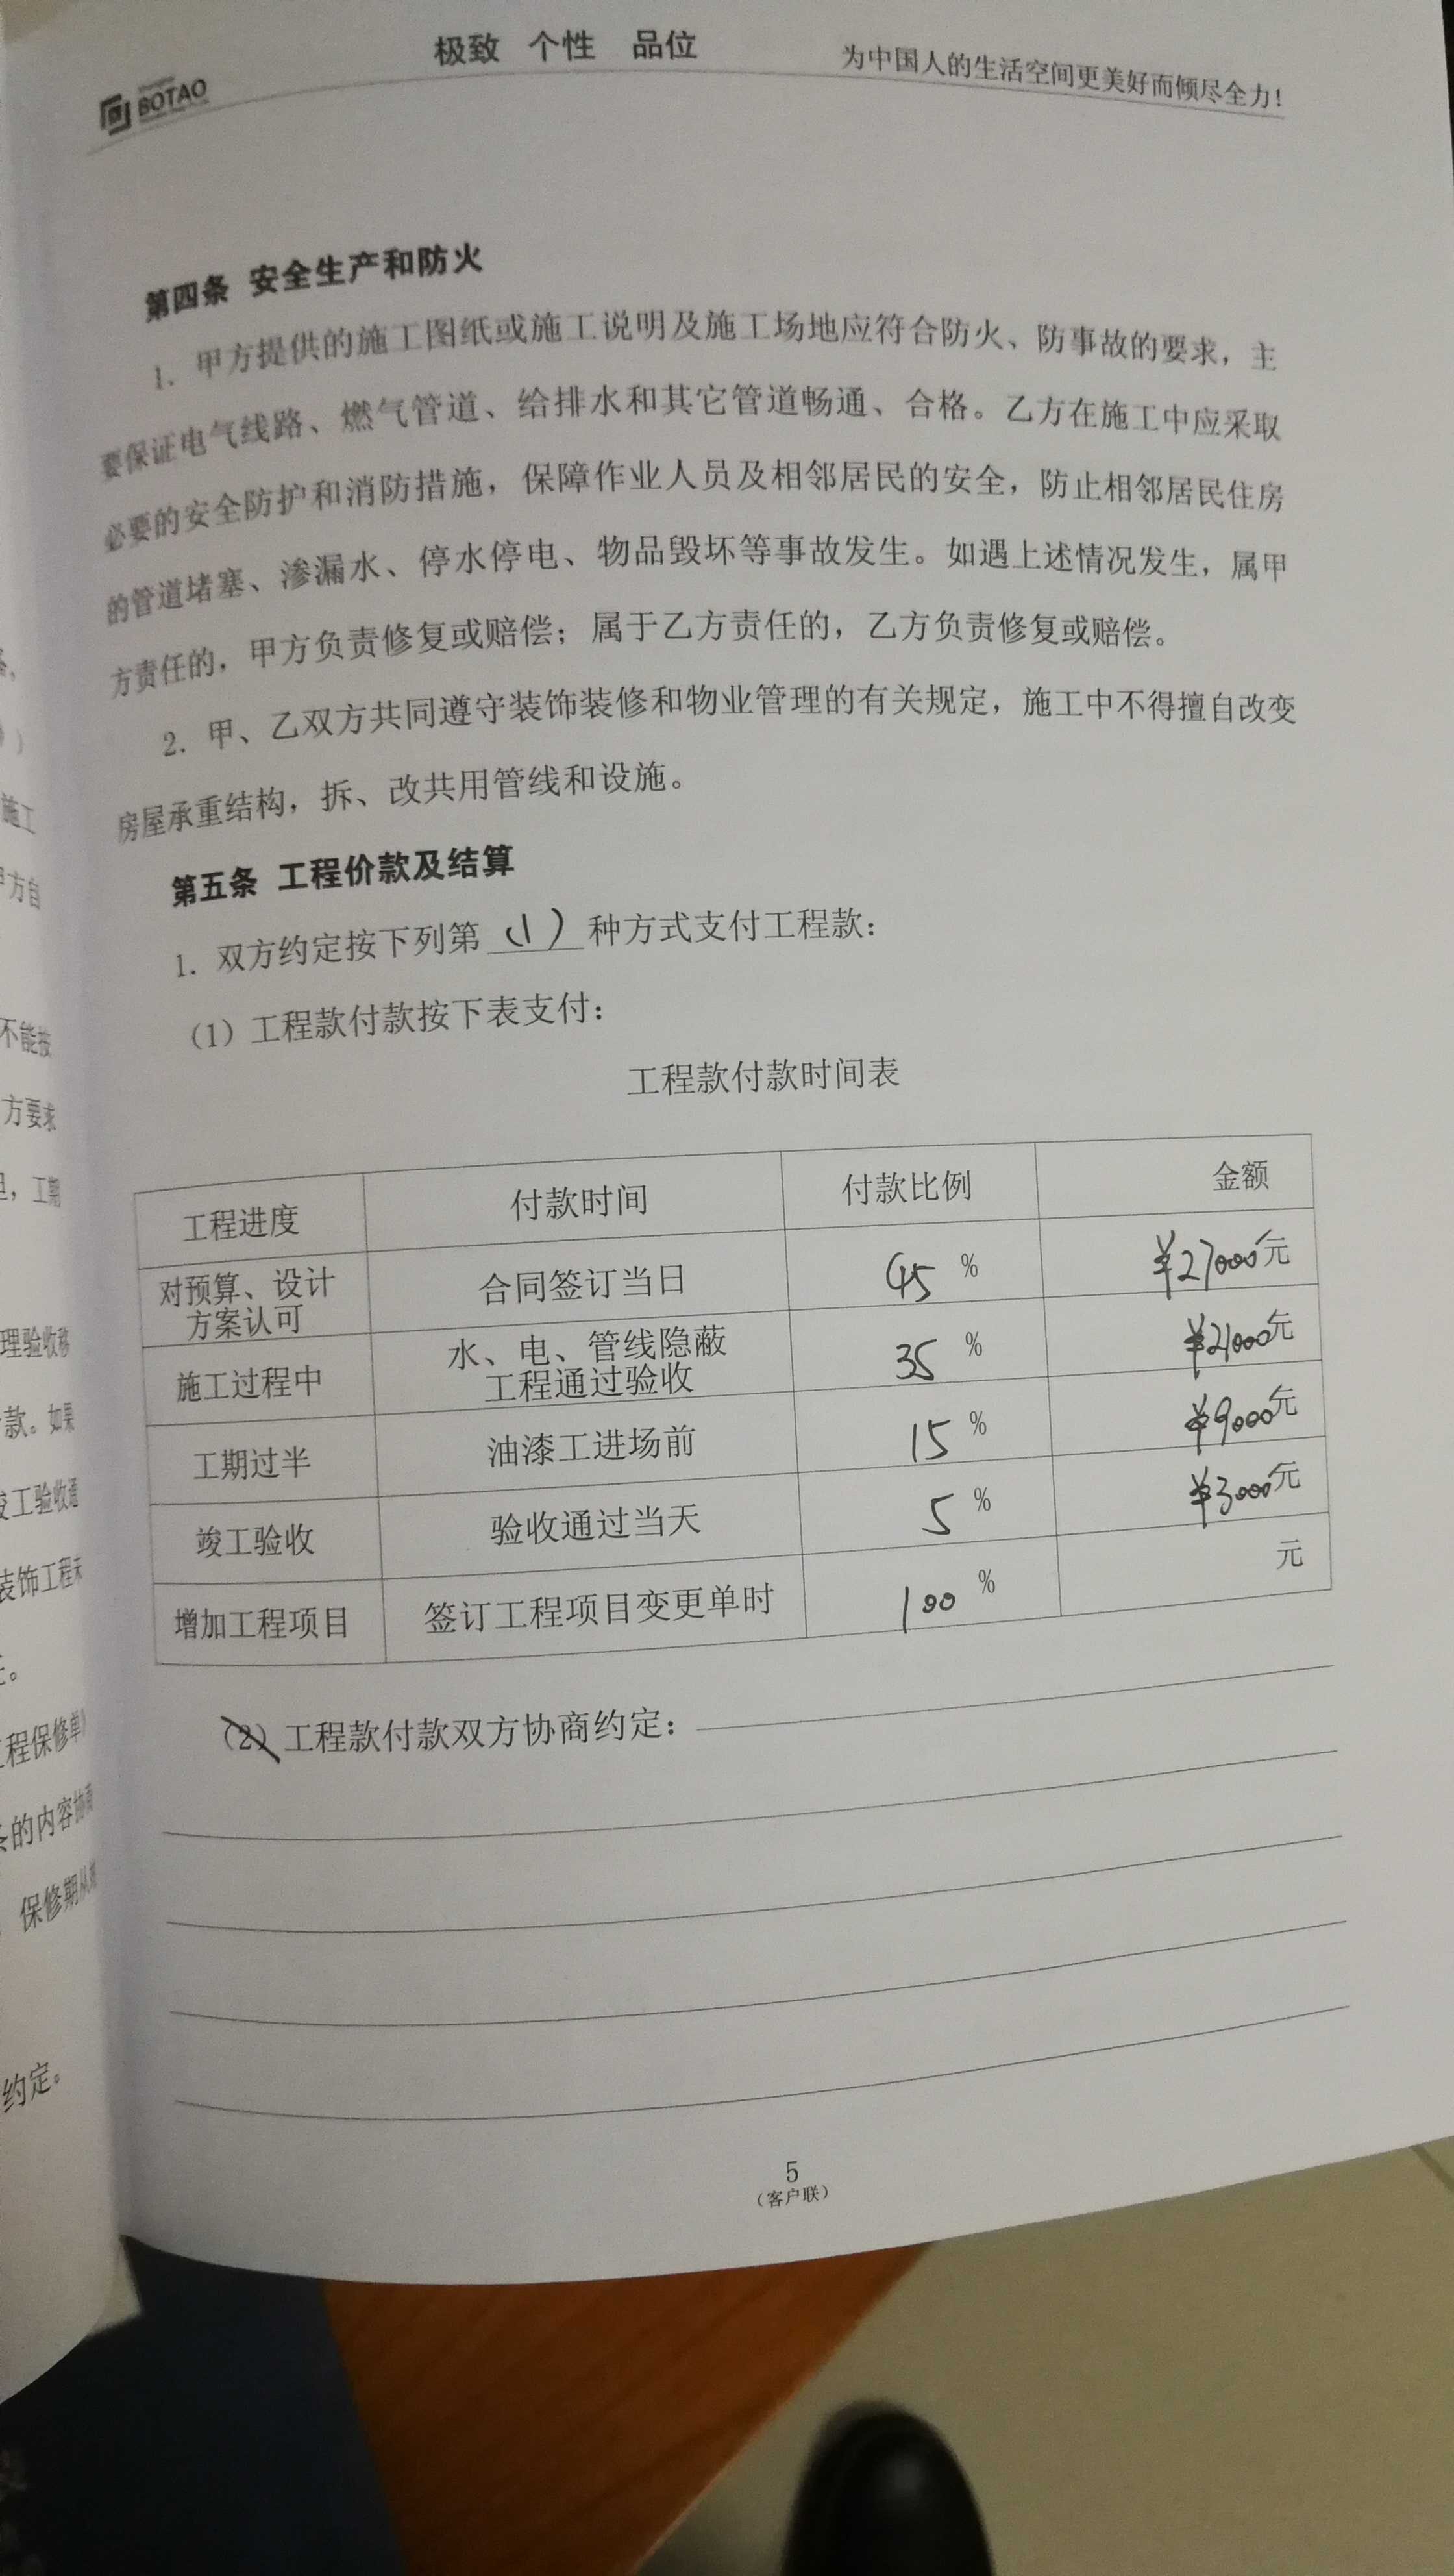 BOTAO
极致 个性 品位
为中国人的生活空间更美好而倾尽全力!
第四条 安全生产和防火
1. 甲方提供的施工图纸或施工说明及施工场地应符合防火、防事故的要求，主
要保证电气线路、燃气管道、给排水和其它管道畅通、合格。乙方在施工中应采取
必要的安全防护和消防措施，保障作业人员及相邻居民的安全，防止相邻居民住房
的管道堵塞、渗漏水、停水停电、物品毁坏等事故发生。如遇上述情况发生，属甲
方责任的，甲方负责修复或赔偿；属于乙方责任的，乙方负责修复或赔偿。
2. 甲、乙双方共同遵守装饰装修和物业管理的有关规定，施工中不得擅自改变
房屋承重结构，拆、改共用管线和设施。
第五条 工程价款及结算
1. 双方约定按下列第 (1) 种方式支付工程款：
（1）工程款付款按下表支付：
工程款付款时间表
工程进度 付款时间 付款比例 金额
对预算、设计
方案认可 合同签订当日 45 % ¥27000元
施工过程中 水、电、管线隐蔽
工程通过验收 35 % ¥21000元
工期过半 油漆工进场前 15 % ¥9000元
竣工验收 验收通过当天 5 % ¥3000元
增加工程项目 签订工程项目变更单时 100 % 元
（2）工程款付款双方协商约定：
5
（客户联）
施工
甲方自
不能按
方要求
，工期
理验收移
款。如果
竣工验收通
装饰工程未
工程保修单
条的内容协商
保修期从
约定。